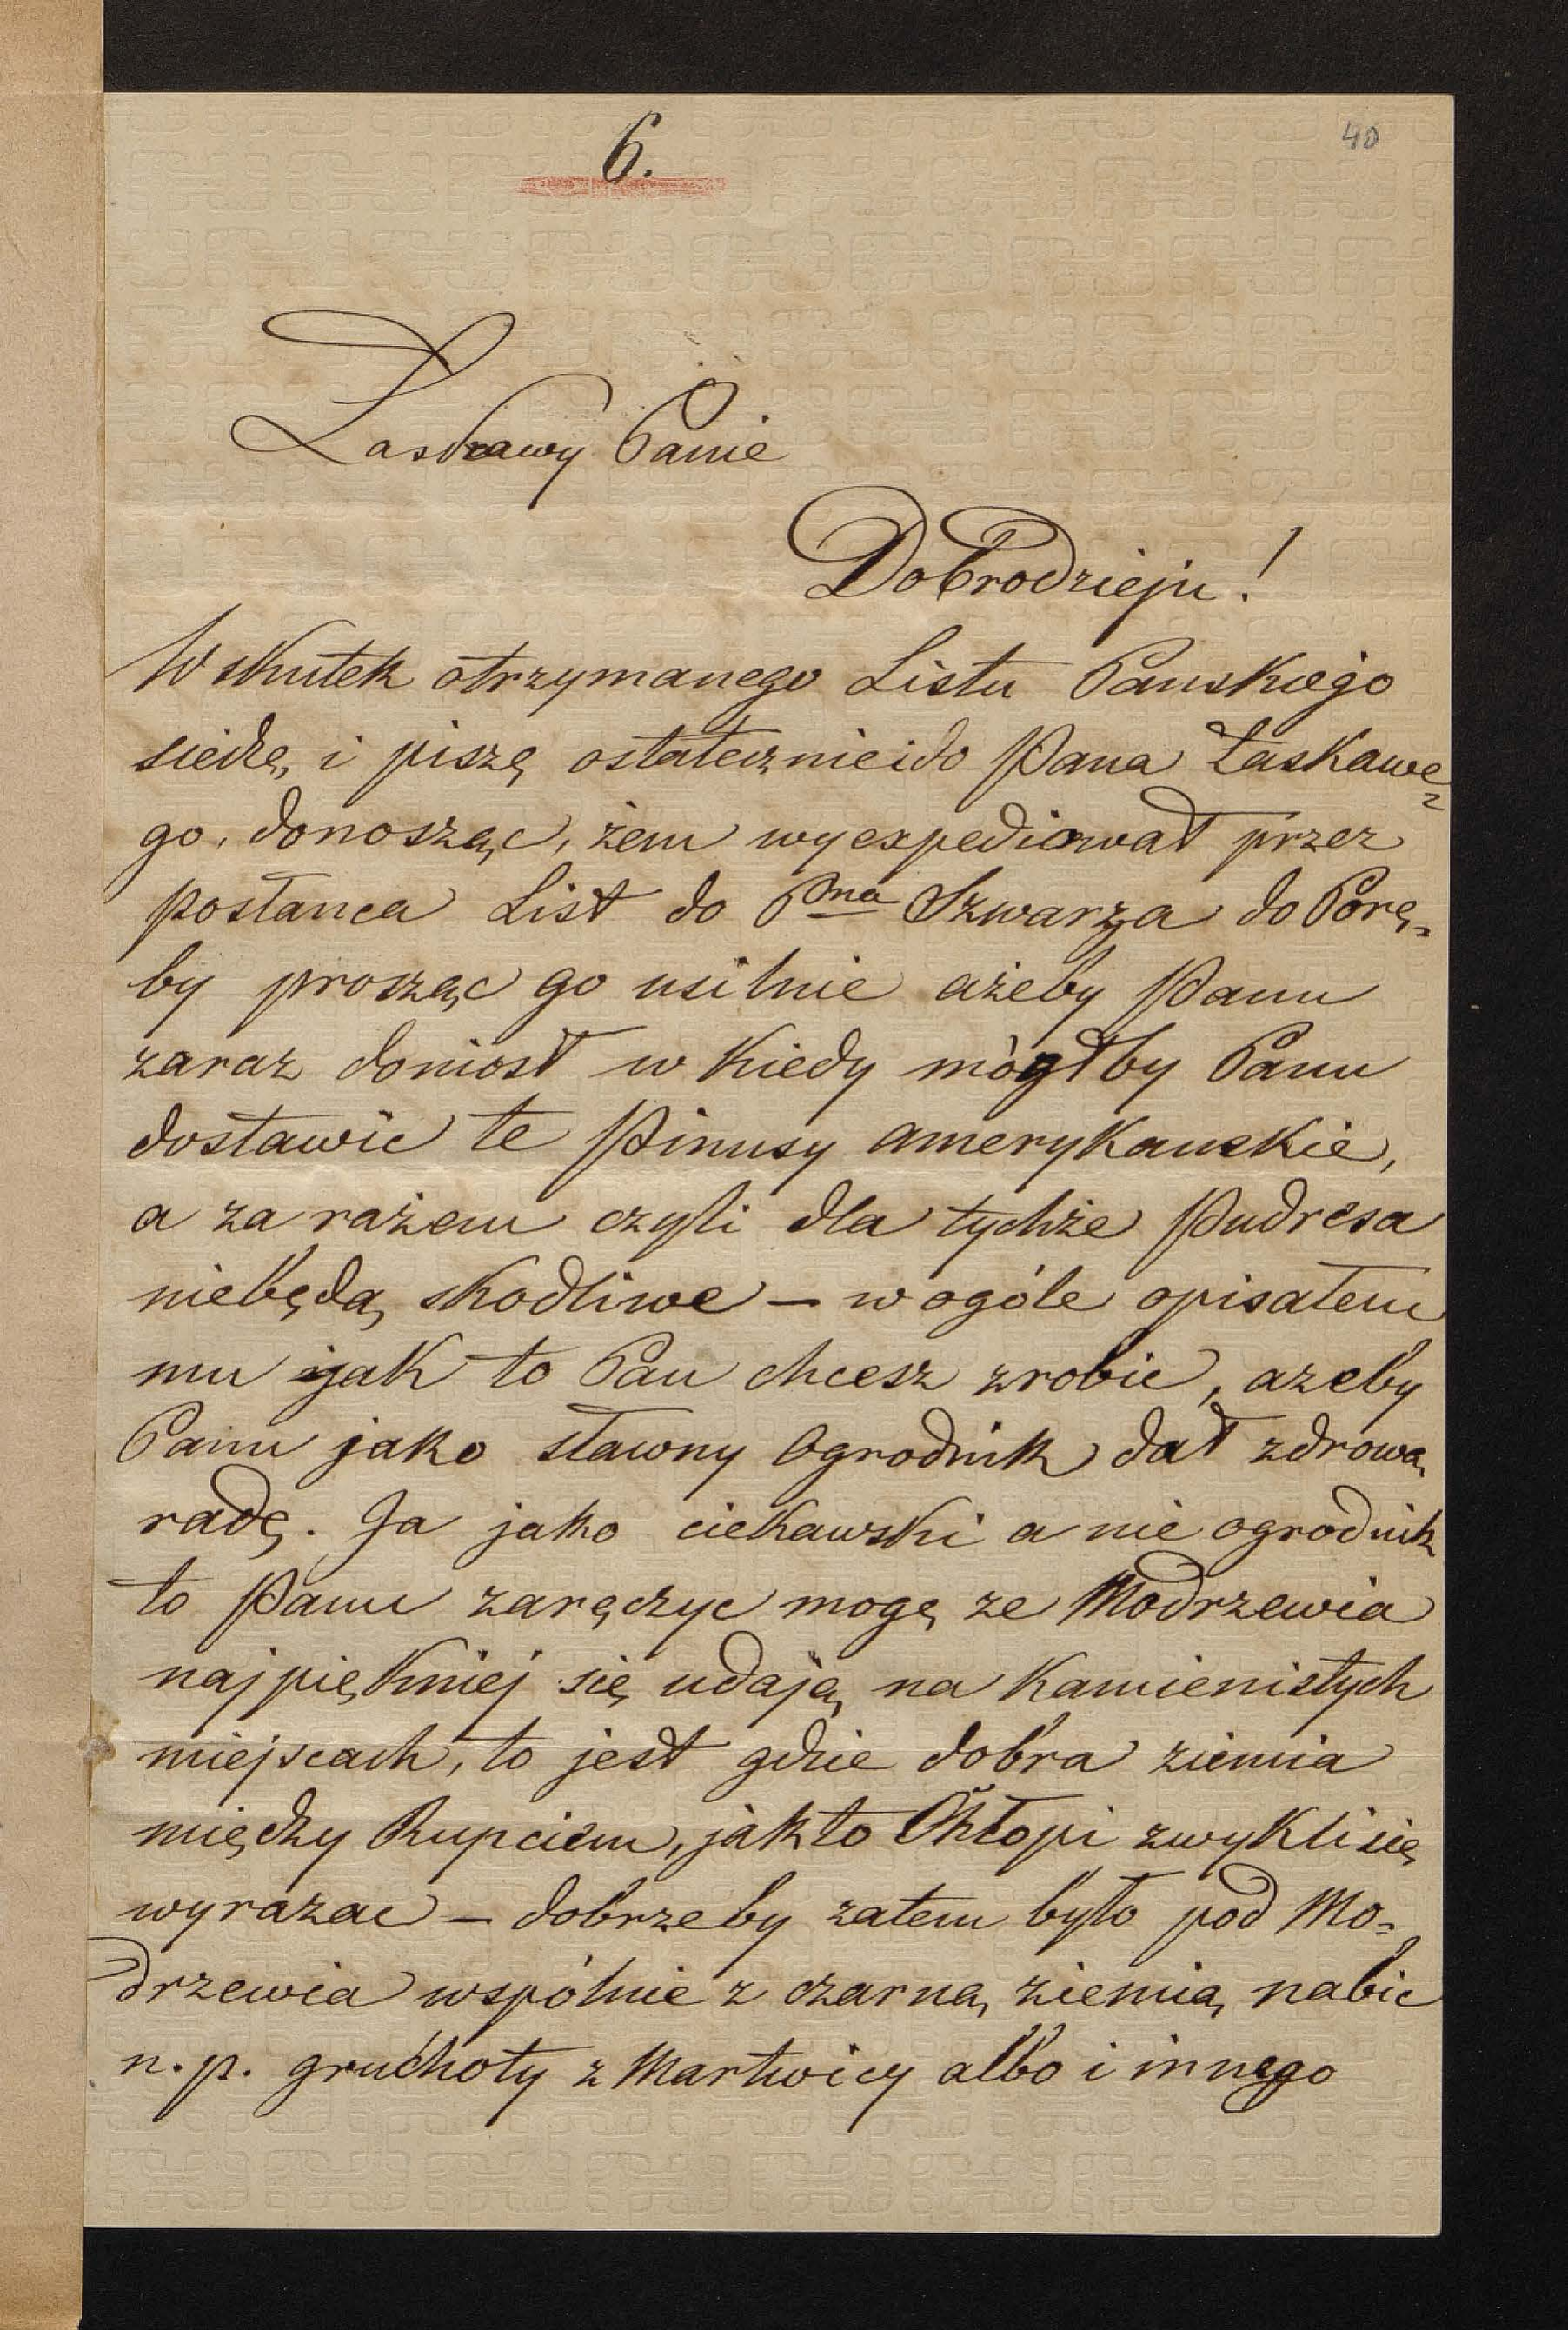 6.
40
Łaskawy Panie
Dobrodzieju!
W skutek otrzymanego Listu Panskiego
siedzę, i piszę ostatecznie i do Pana Łaskawe=
go, donosząc, żem wyexpediował przez
posłanca List do Pna Szwarza do Porę=
by prosząc go usilnie ażeby Panu
zaraz doniosł w kiedy mògłby Panu
dostawic te Pinusy amerykanskie,
a za rażem czyli dla tychże Pudresa
niebędą skodliwe – w ogóle opisałem
mu jak to Pan chcesz zrobic, azeby
Panu jako sławny Ogrodnik dał zdrową
radę. Ja jako ciekawski a nie ogrodnik
to Panu zaręczyc mogę ze Modrzewia
najpiękniej się udają na Kamienistych
miejscach, to jest gdzie dobra ziemia
między Rupciem, jak to Chłopi zwykli się
wyrazac – dobrze by zatem było pod Mo=
drzewia wspólnie z czarną ziemią nabic
n. p. gruchoty z Martwicy albo i innego